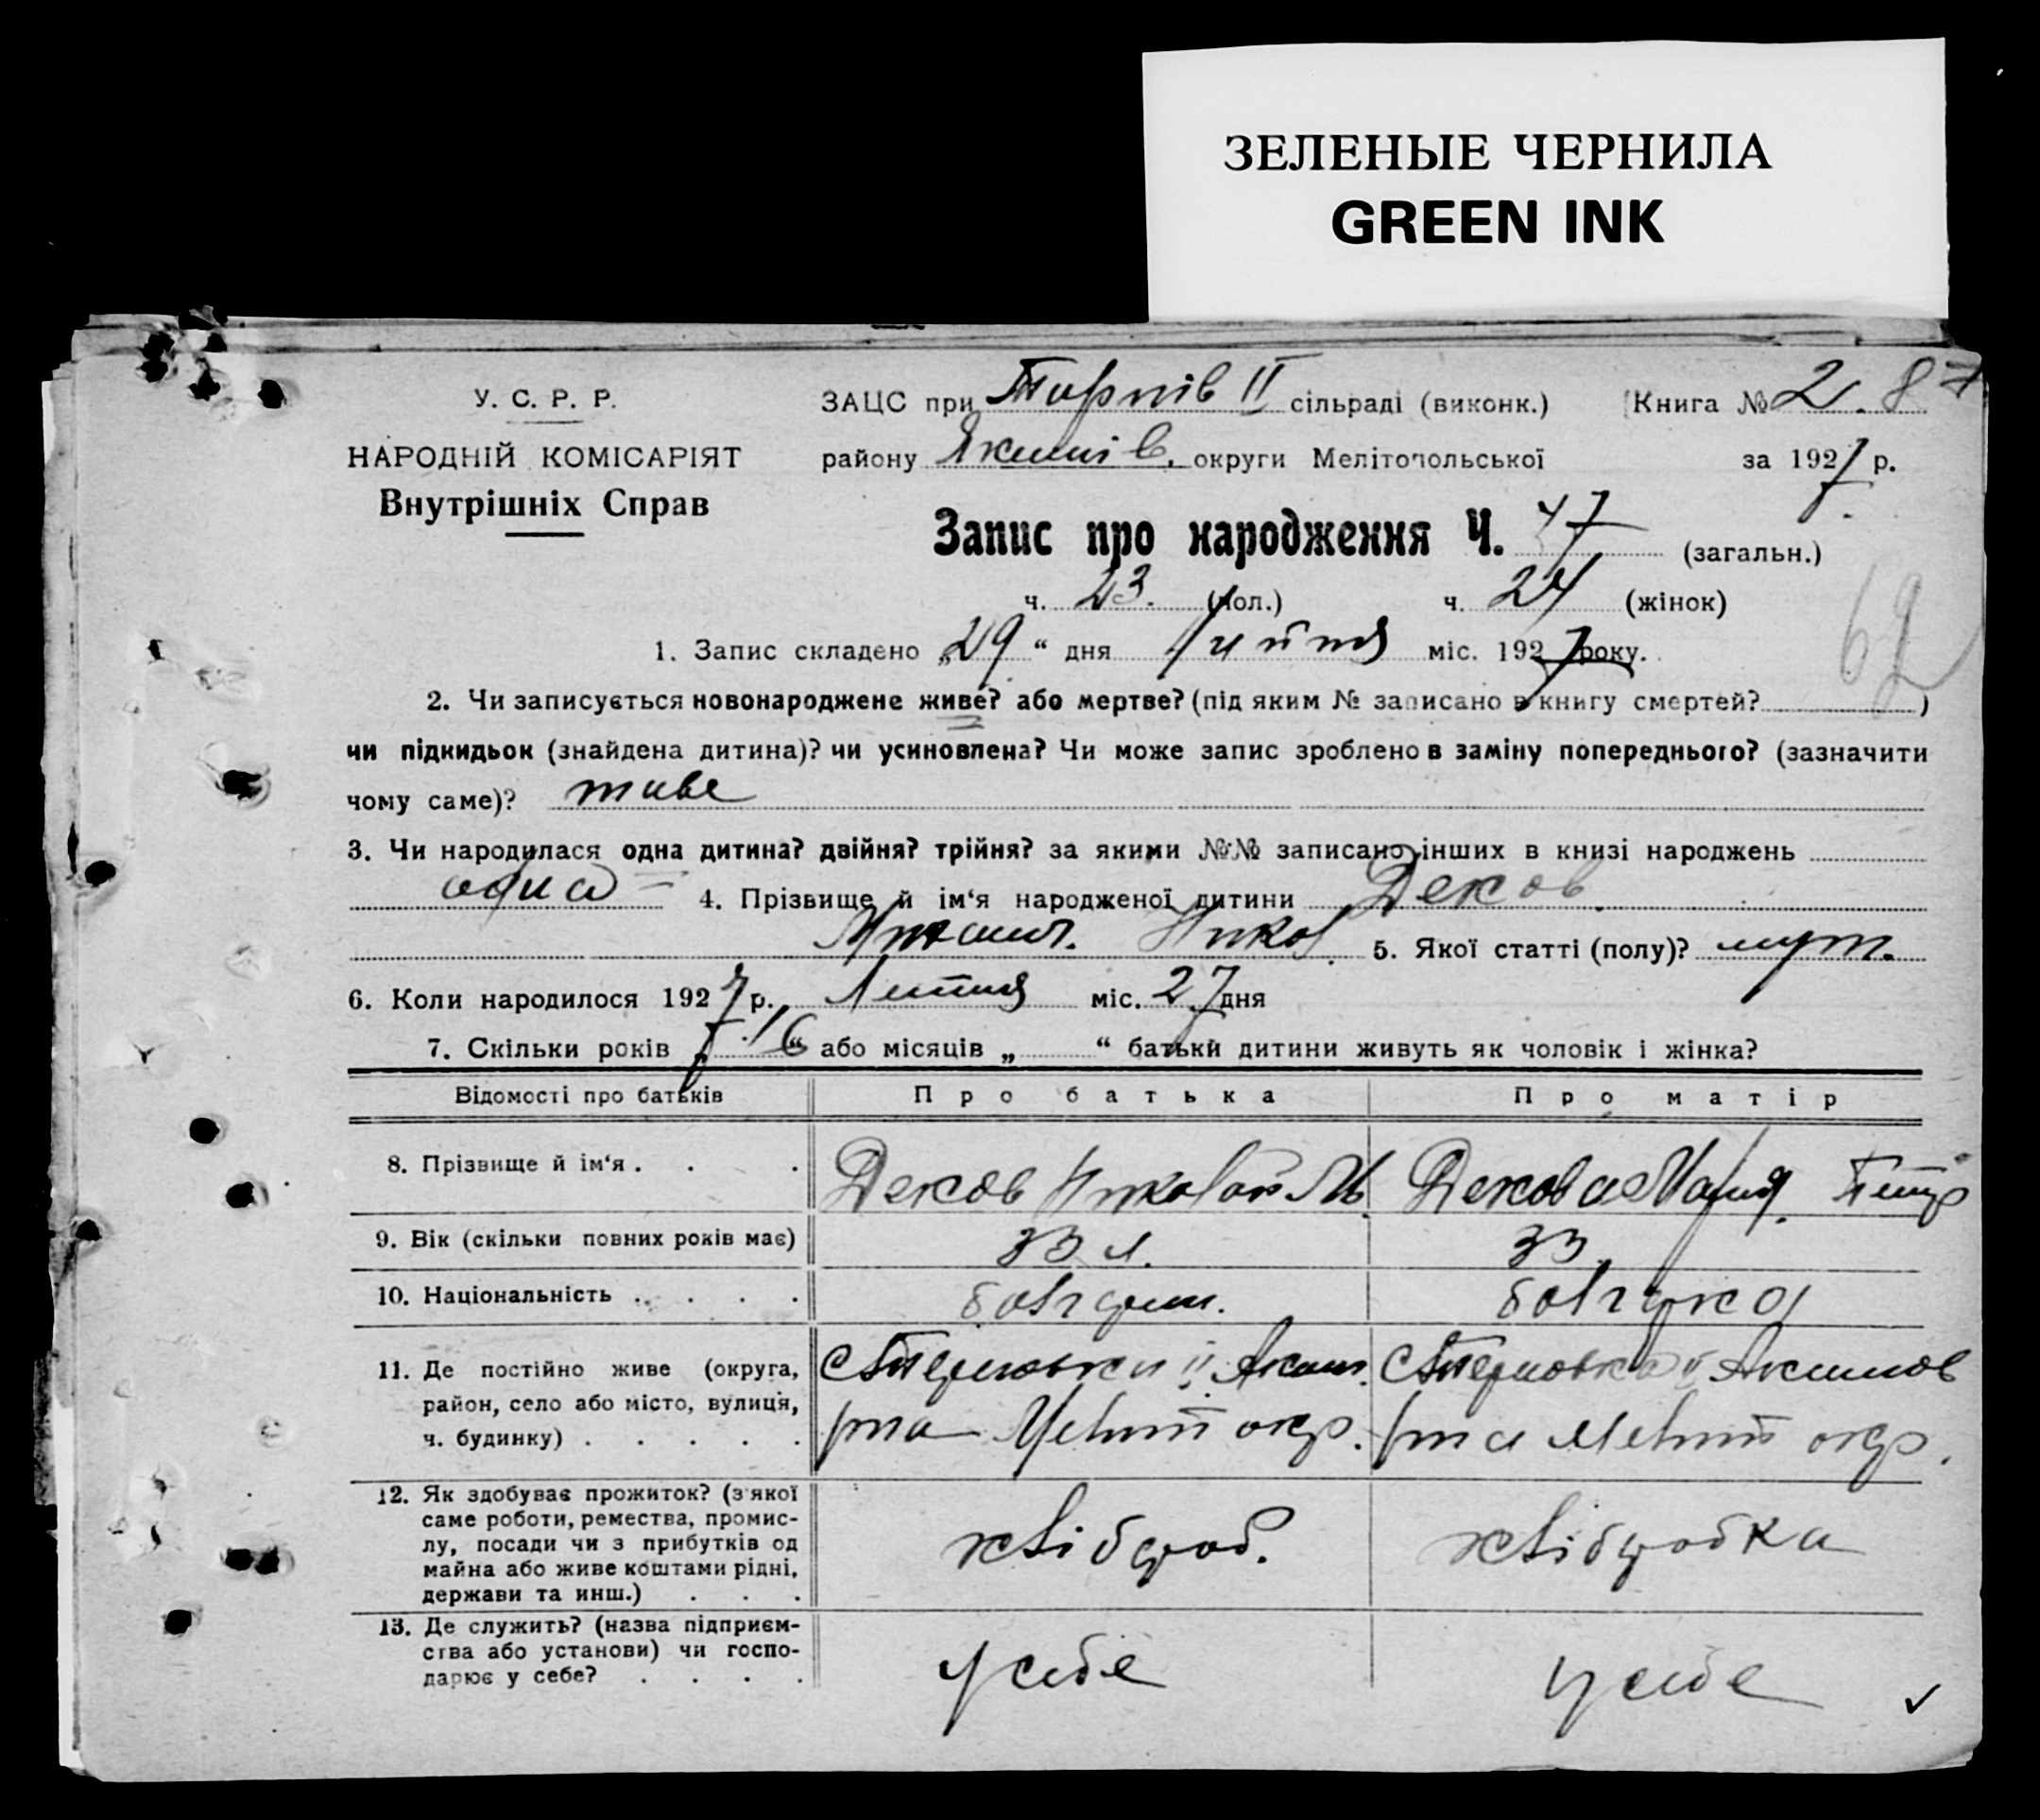 ЗЕЛЕНЫЕ ЧЕРНИЛА
GREEN INK
У. С. Р. Р.
НАРОДНІЙ КОМІСАРІЯТ
Внутрішніх Справ
ЗАЦС при II сільраді (виконк.) Книга № 2. 87
району Якимів. округи Мелітопольської за 1927 р.
Запис про народження Ч. 47 (загальн.)
ч. 23. (чол.) ч. 24 (жінок)
62
1. Запис складено „29“ дня липня міс. 1927 року.
2. Чи записується новонароджене живе? або мертве? (під яким № записано в книгу смертей? )
чи підкидьок (знайдена дитина)? чи усиновлена? Чи може запис зроблено в заміну попереднього? (зазначити
чому саме)? живе
3. Чи народилася одна дитина? двійня? трійня? за якими №№ записано інших в книзі народжень
одна 4. Прізвище й ім‘я народженої дитини Деков
Никол. 5. Якої статті (полу)? муж.
6. Коли народилося 1927 р. Липня міс. 27 дня
7. Скільки років „16“ або місяців „ “ батьки дитини живуть як чоловік і жінка?
Відомості про батьків Про батька Про матір
8. Прізвище й ім‘я . . . Деков Николай М. Декова Мария Петр
9. Вік (скільки повних років має) 33 л. 33
10. Національність . . . . . болгарин. болгарка
11. Де постійно живе (округа, район, село або місто, вулиця, ч. будинку) . . . . .
с Терновка II Аким. р-на Мелит окр.
с Терновка II Акимов р-на Мелит окр.
12. Як здобуває прожиток? (з якої саме роботи, ремества, промислу, посади чи з прибутків од майна або живе коштами рідні, держави та инш.) . . .
хлібороб. хліборобка
13. Де служить? (назва підприємства або установи) чи господарює у себе? . . . .
у себе у себе